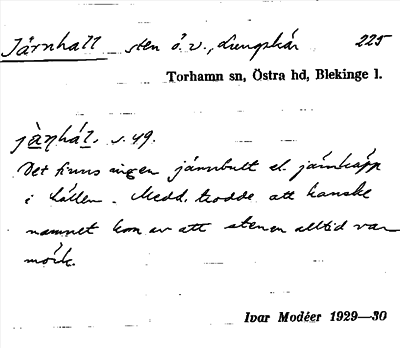 Järnhall sten ö. v., Lungskär 225
Torhamn sn, Östra hd, Blekinge l.
jà̱ṇhá̱l. s. 49.
Det finns ingen järnbult el. järnkäpp
i hällen. Medd. trodde att kanske
namnet kom av att stenen alltid var
mörk.
Ivar Modéer 1929—30